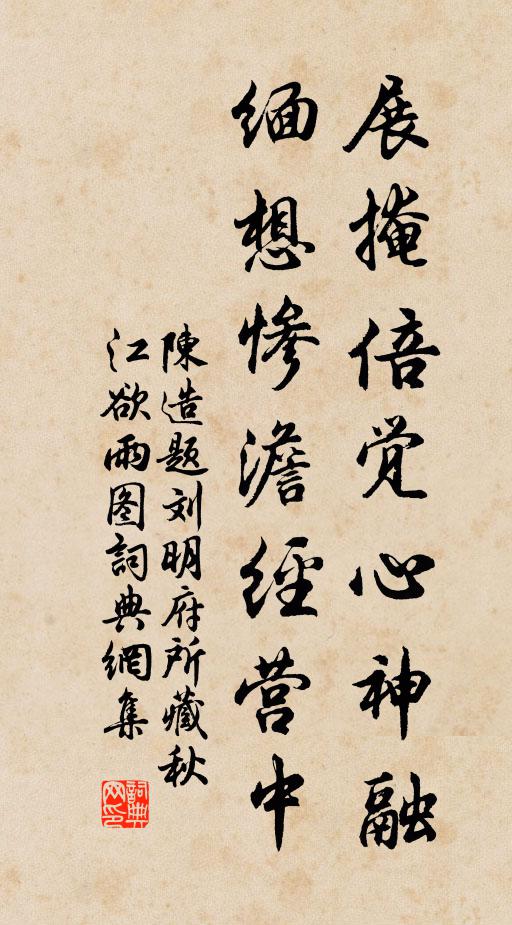 展掩倍觉心神融
缅想惨澹經营中
陳造题刘明府所藏秋
江欲雨图詞典網集
詞典网印